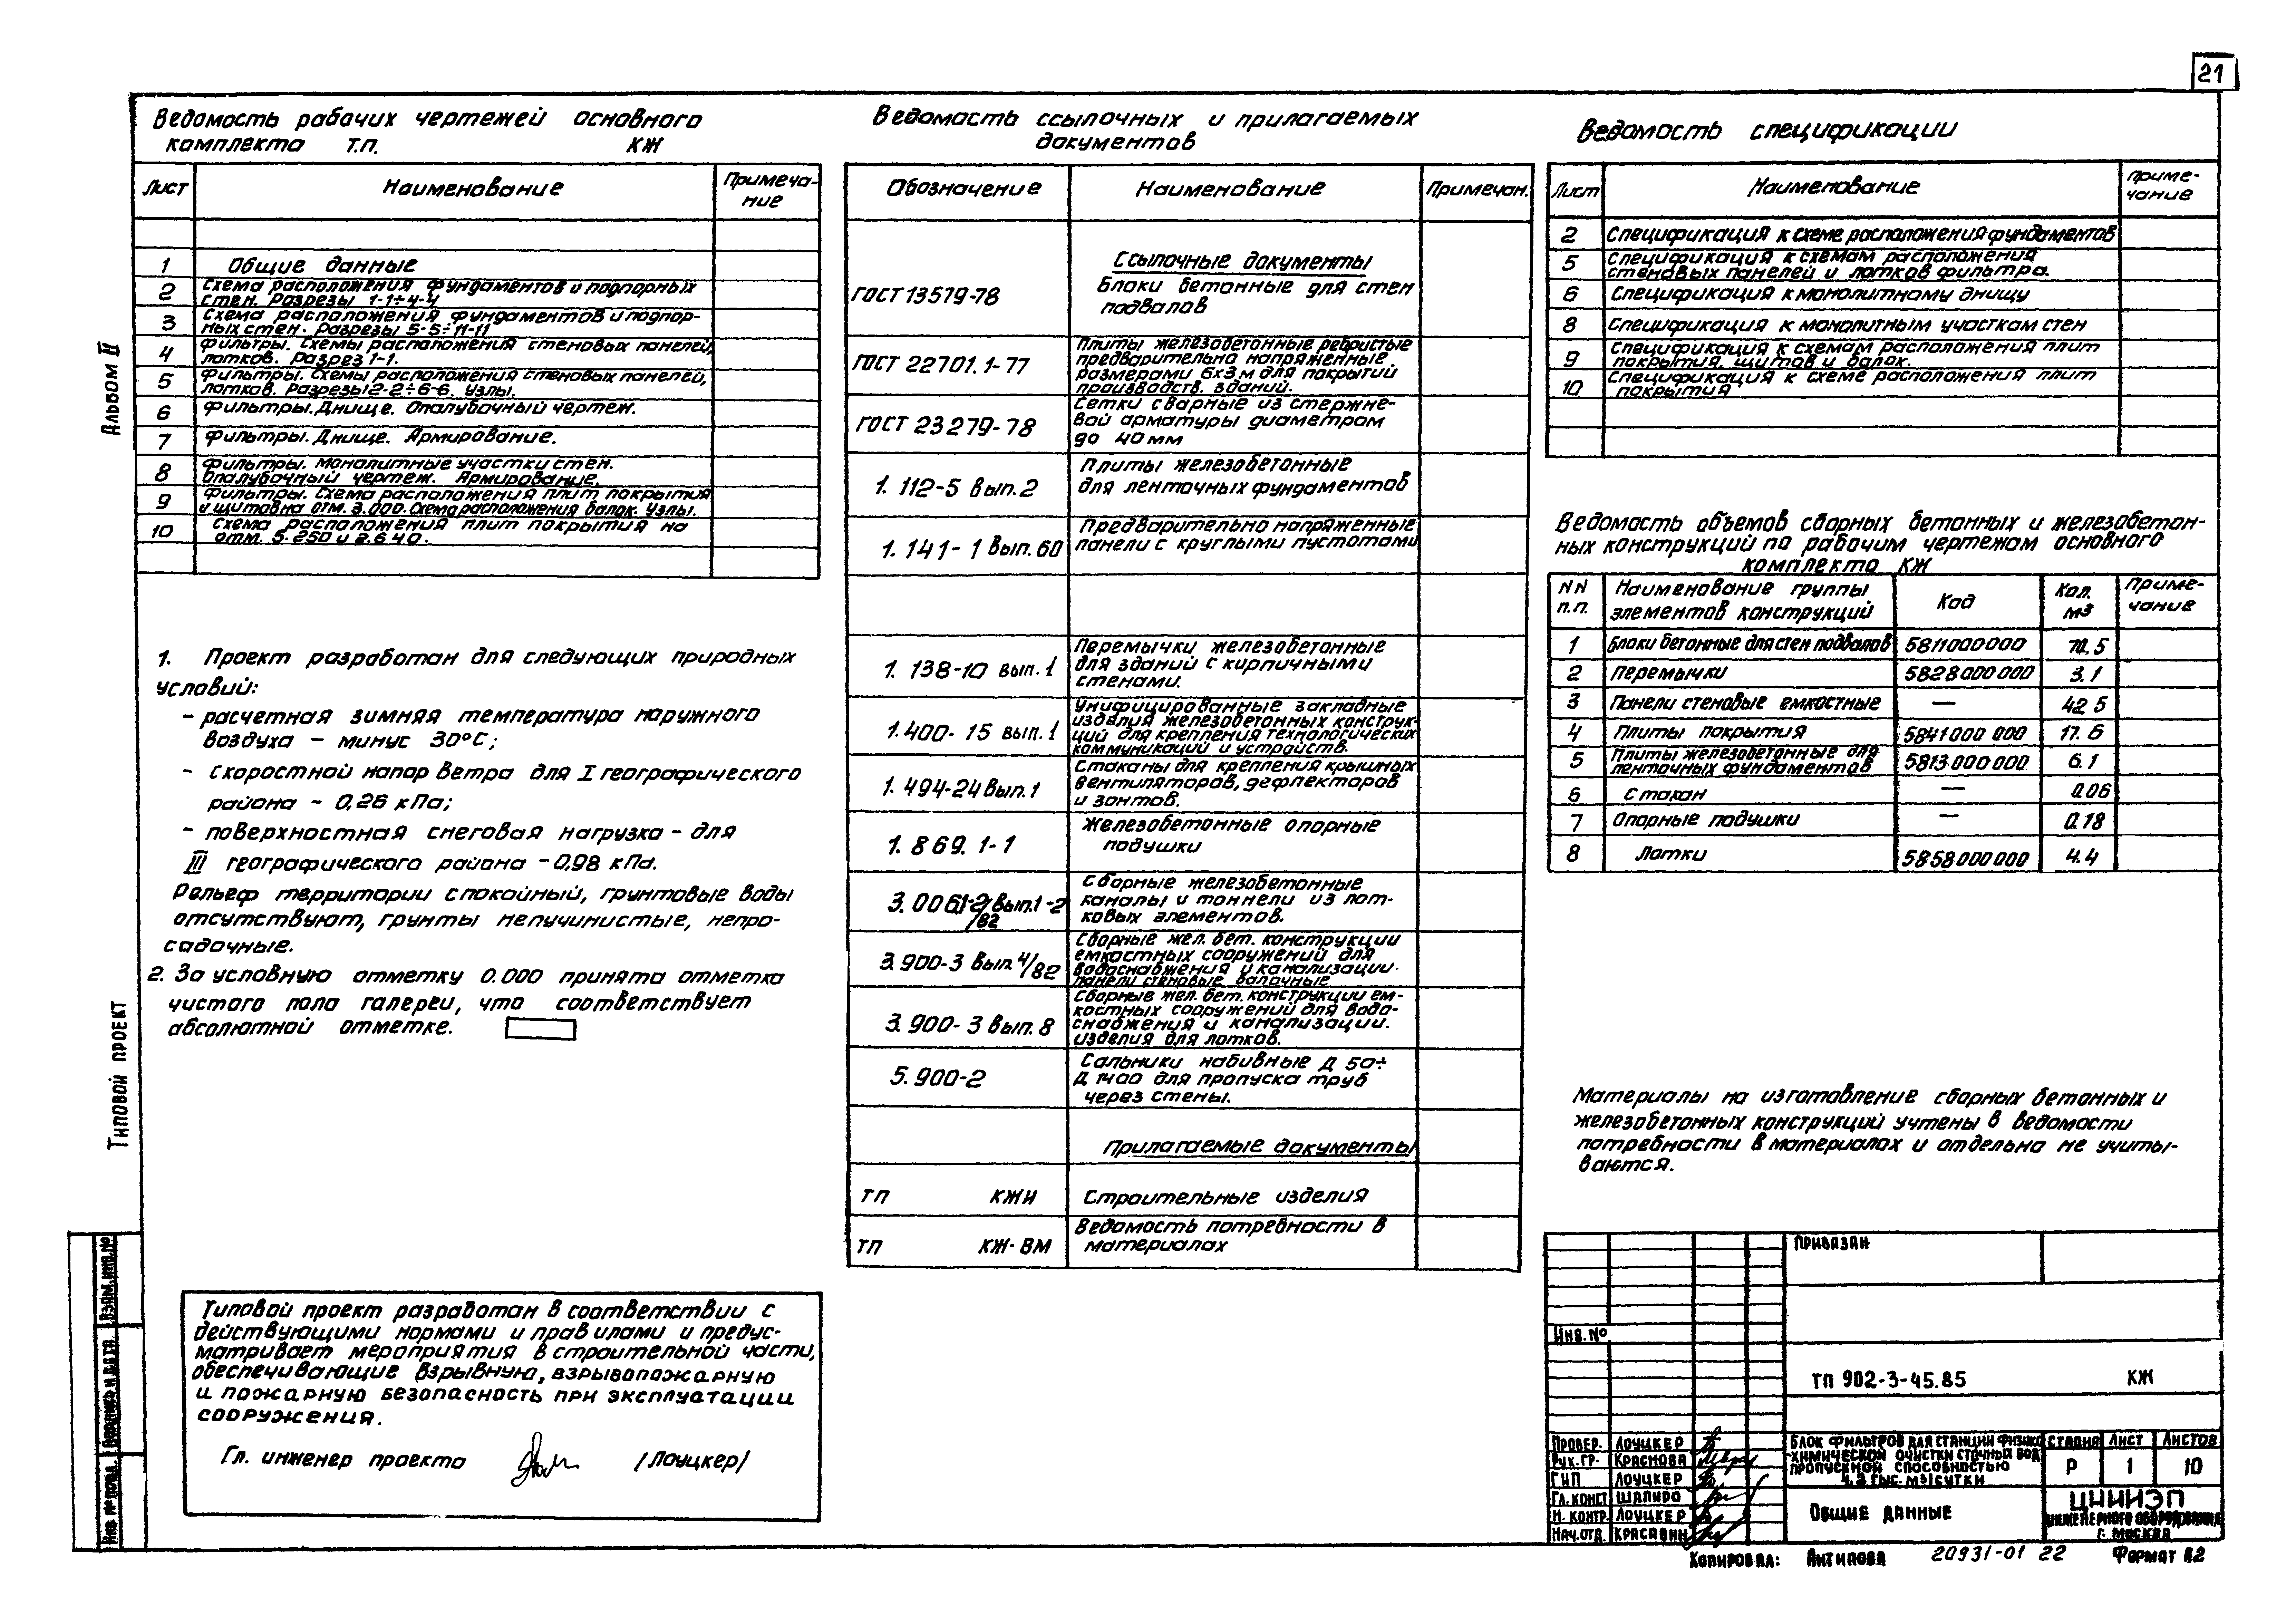 21
Ведомость рабочих чертежей основного
комплекта Т.П. КЖ
Лист Наименование Примеча-
ние
1 Общие данные
2 Схема расположения фундаментов и подпорных
стен. Разрезы 1-1÷4-4
3 Схема расположения фундаментов и подпор-
ных стен. Разрезы 5-5÷11-11
4 Фильтры. Схемы расположения стеновых панелей,
лотков. Разрез 1-1.
5 Фильтры. Схемы расположения стеновых панелей,
лотков. Разрезы 2-2÷6-6. Узлы.
6 Фильтры. Днище. Опалубочный чертеж.
7 Фильтры. Днище. Армирование.
8 Фильтры. Монолитные участки стен.
Опалубочный чертеж. Армирование.
9 Фильтры. Схема расположения плит покрытия
и щитов на отм. 3.000. Схема расположения балок. Узлы.
10 Схема расположения плит покрытия на
отм. 5.250 и 2.640.
1. Проект разработан для следующих природных
условий:
- расчетная зимняя температура наружного
воздуха - минус 30°С;
- скоростной напор ветра для I географического
района - 0,26 кПа;
- поверхностная снеговая нагрузка - для
III географического района - 0,98 кПа.
Рельеф территории спокойный, грунтовые воды
отсутствуют, грунты непучинистые, непро-
садочные.
2. За условную отметку 0.000 принята отметка
чистого пола галереи, что соответствует
абсолютной отметке.
Типовой проект разработан в соответствии с
действующими нормами и правилами и предус-
матривает мероприятия в строительной части,
обеспечивающие взрывную, взрывопожарную
и пожарную безопасность при эксплуатации
сооружения.
Гл. инженер проекта /Лоуцкер/
Ведомость ссылочных и прилагаемых
документов
Обозначение Наименование Примечан.
Ссылочные документы
ГОСТ 13579-78 Блоки бетонные для стен
подвалов
ГОСТ 22701.1-77 Плиты железобетонные ребристые
предварительно напряженные
размерами 6х3м для покрытий
производств. зданий.
ГОСТ 23279-78 Сетки сварные из стержне-
вой арматуры диаметром
до 40 мм
1.112-5 вып.2 Плиты железобетонные
для ленточных фундаментов
1.141-1 вып.60 Предварительно напряженные
панели с круглыми пустотами
1.138-10 вып.1 Перемычки железобетонные
для зданий с кирпичными
стенами.
1.400-15 вып.1 Унифицированные закладные
изделия железобетонных конструк-
ций для крепления технологических
коммуникаций и устройств.
1.494-24 вып.1 Стаканы для крепления крышных
вентиляторов, дефлекторов
и зонтов.
1.869.1-1 Железобетонные опорные
подушки
3.0061-2/82 вып.1-2 Сборные железобетонные
каналы и тоннели из лот-
ковых элементов.
3.900-3 вып.4/82 Сборные жел. бет. конструкции
емкостных сооружений для
водоснабжения и канализации.
Панели стеновые балочные
3.900-3 вып.8 Сборные жел. бет. конструкции ем-
костных сооружений для водо-
снабжения и канализации.
Изделия для лотков.
5.900-2 Сальники набивные Д 50÷
Д 1400 для пропуска труб
через стены.
Прилагаемые документы
ТП КЖИ Строительные изделия
ТП КЖ-ВМ Ведомость потребности в
материалах
Ведомость спецификации
Лист Наименование Приме-
чание
2 Спецификация к схеме расположения фундаментов
5 Спецификация к схемам расположения
стеновых панелей и лотков фильтра.
6 Спецификация к монолитному днищу
8 Спецификация к монолитным участкам стен
9 Спецификация к схемам расположения плит
покрытия, щитов и балок.
10 Спецификация к схеме расположения плит
покрытия
Ведомость объемов сборных бетонных и железобетон-
ных конструкций по рабочим чертежам основного
комплекта КЖ
NN п.п. Наименование группы элементов конструкций Код Кол. м3 Приме-
чание
1 Блоки бетонные для стен подвалов 5811000000 70.5
2 Перемычки 5828000000 3.1
3 Панели стеновые емкостные — 42.5
4 Плиты покрытия 5841000000 17.6
5 Плиты железобетонные для
ленточных фундаментов 5813000000 6.1
6 Стакан — 0.06
7 Опорные подушки — 0.18
8 Лотки 5858000000 4.4
Материалы на изготовление сборных бетонных и
железобетонных конструкций учтены в ведомости
потребности в материалах и отдельно не учиты-
ваются.
Привязан
Инв.№
ТП 902-3-45.85 КЖ
Провер. Лоуцкер
Рук.гр. Краснова
ГИП Лоуцкер
Гл.конст Шапиро
Н.контр. Лоуцкер
Нач.отд. Красавин
Блок фильтров для станции физико
-химической очистки сточных вод
пропускной способностью
4,2 тыс. м3/сутки
Стадия Лист Листов
Р 1 10
Общие данные
ЦНИИЭП
инженерного оборудования
г. Москва
Копировал: Антипова 20931-01 22 Формат А2
Альбом II
Типовой проект
Взам.инв.№
Подпись и дата
Инв.№ подл.